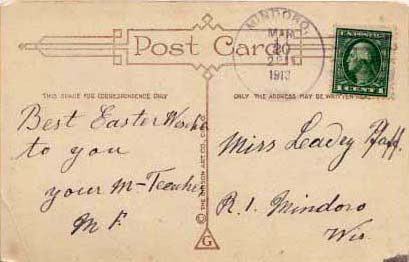 Post Card
MINDORO,
MAR
20
2 PM
1913
1 CENT 1
THIS SPACE FOR CORRESPONDENCE ONLY
ONLY THE ADDRESS MAY BE WRITTEN HERE
Best Easter Wishes
to you
your M-Teacher
M F.
© THE GIBSON ART CO., CIN. O.
G
Miss Leadey Pfaff.
R. 1. Mindoro
Wis